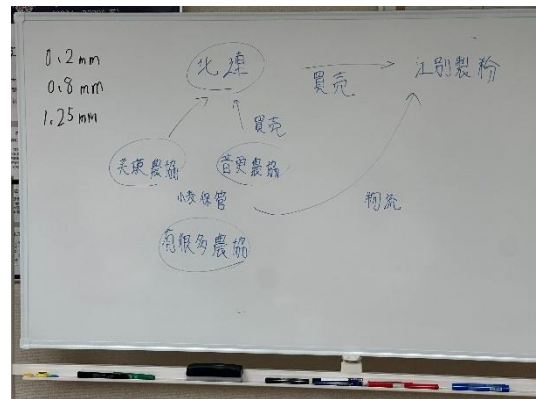 0.2mm
0.8mm
1.25mm
北連
買売
江別製粉
買売
美瑛農協
音更農協
小麦保管
物流
有很多農協